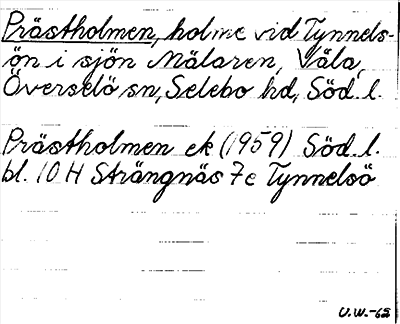 Prästholmen, holme vid Tynnels-
ön i sjön Mälaren, Väla,
Överselö sn, Selebo hd, Söd. l.
Prästholmen ek (1959) Söd. l.
bl. 10 H Strängnäs 7c Tynnelsö
U.W.-62